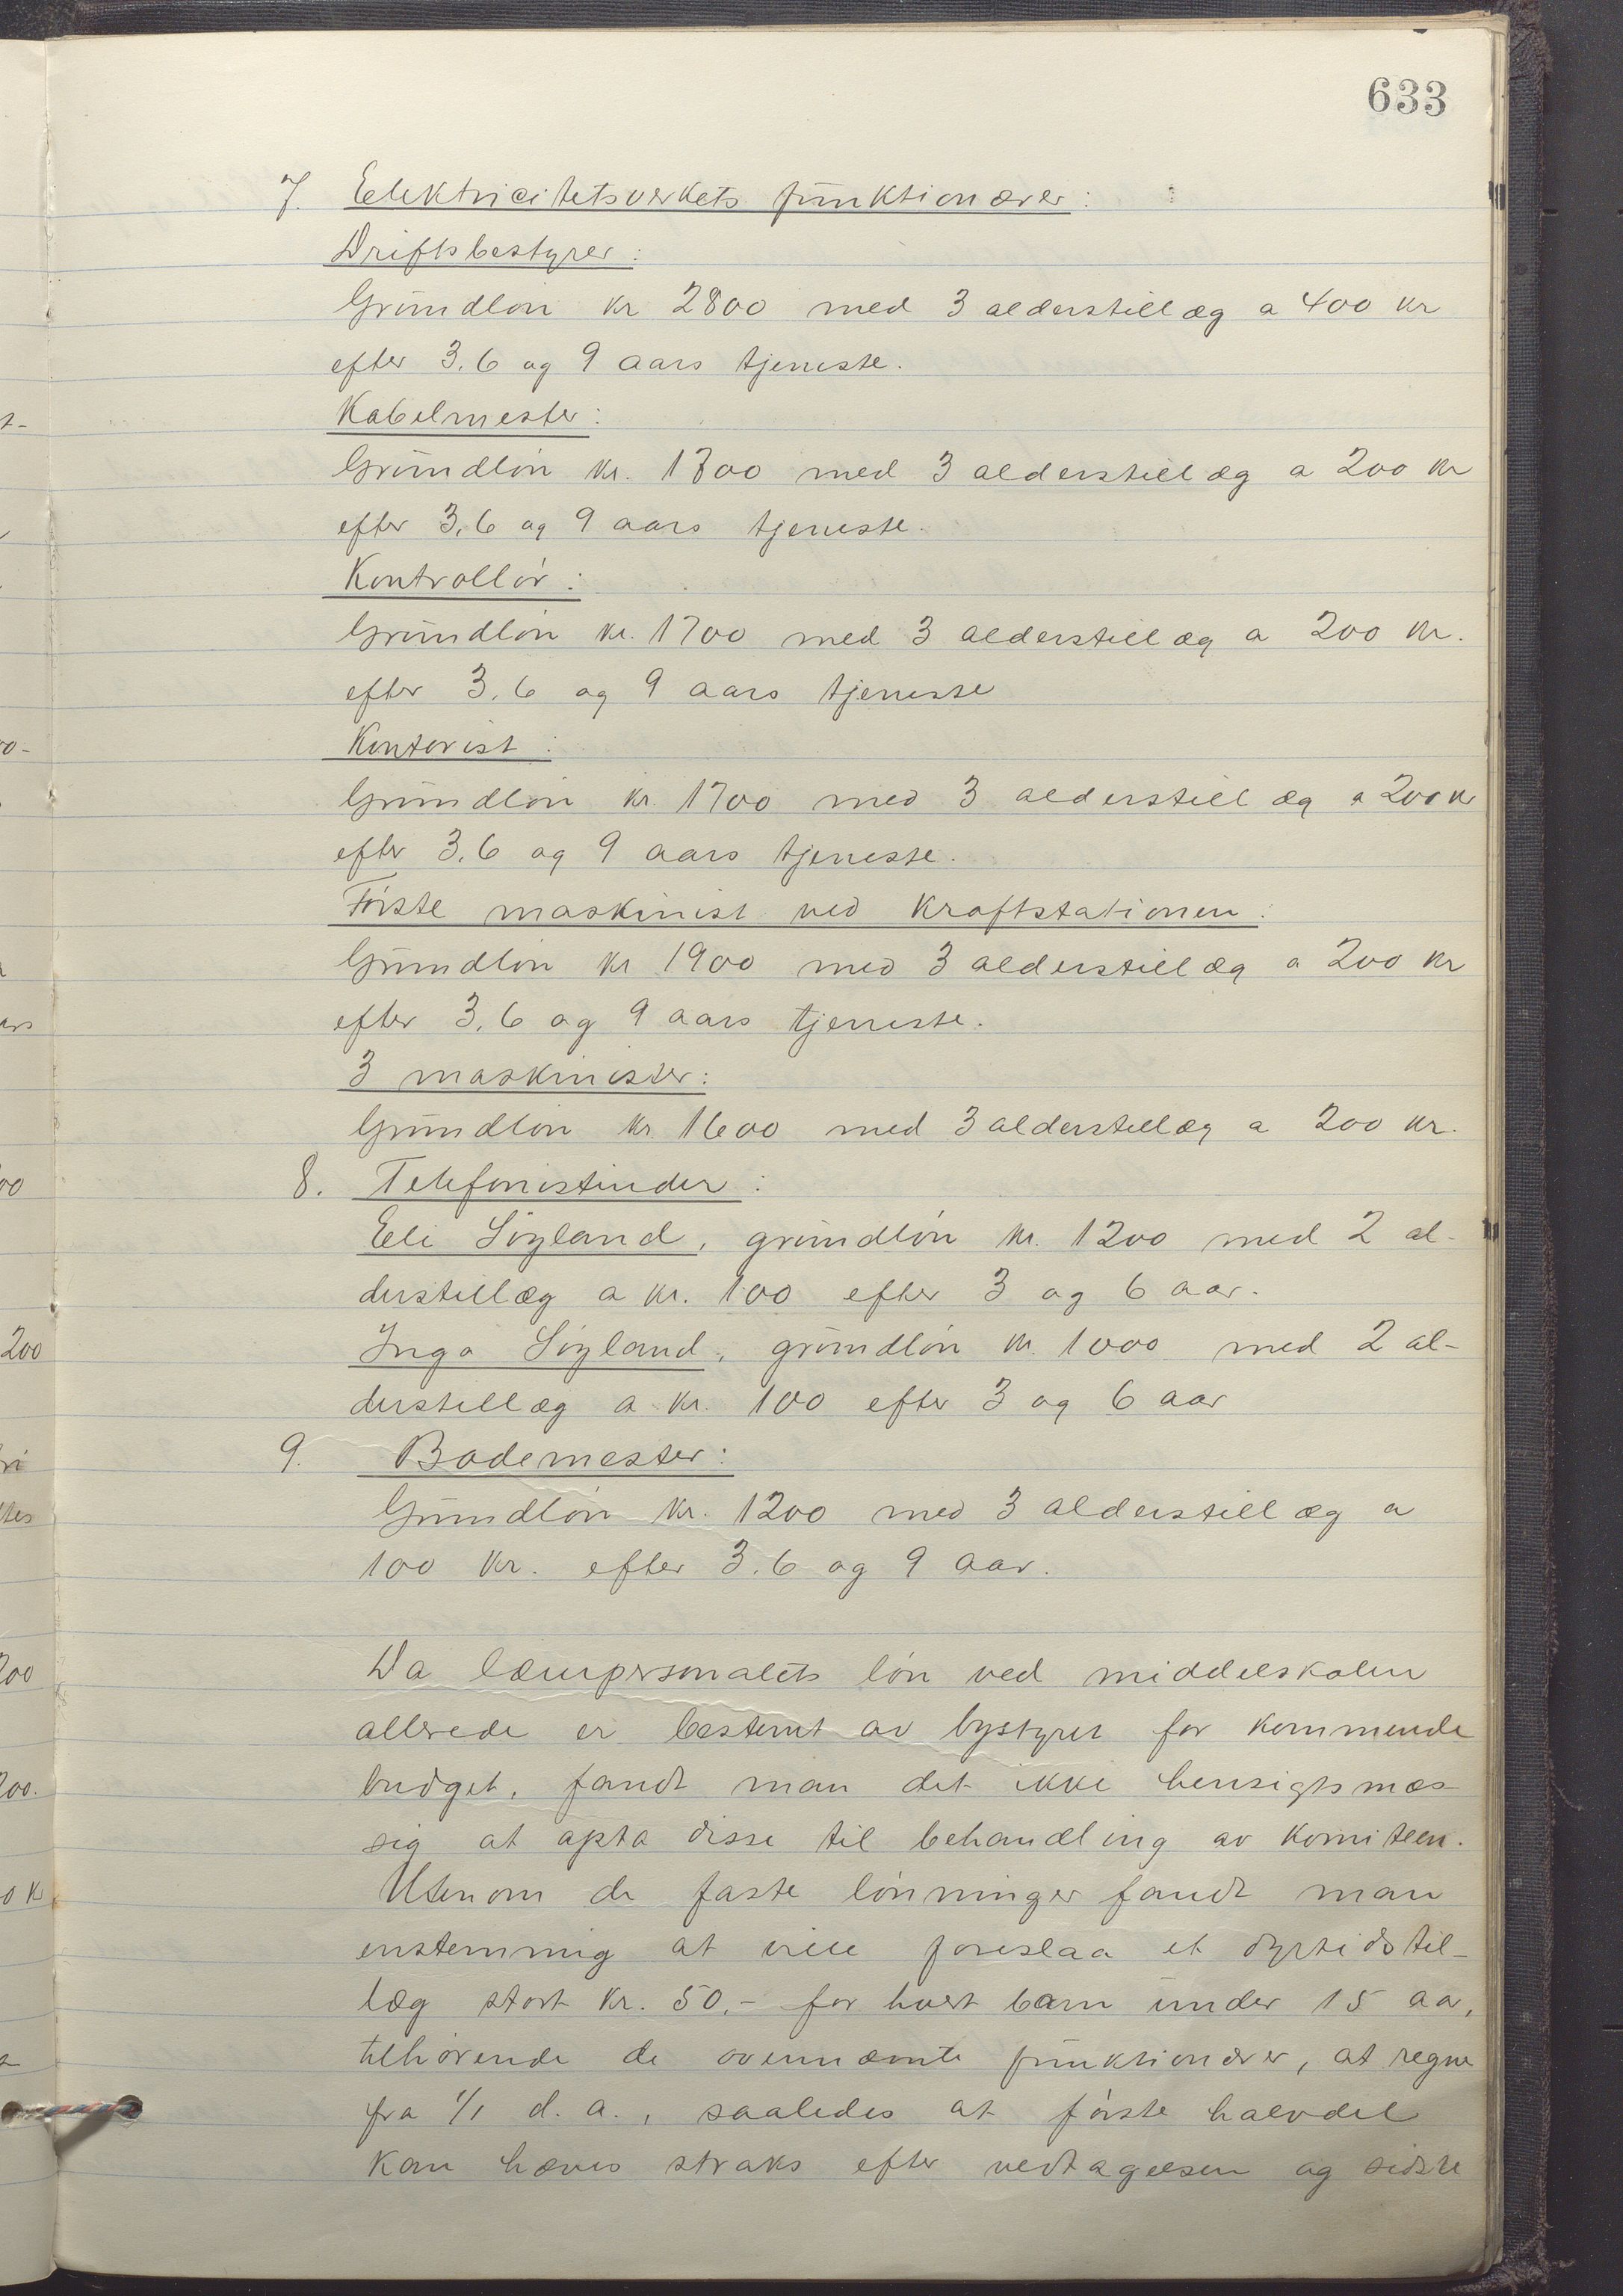 633
7. Elektricitetsverkets funktionærer:
Driftsbestyrer:
Grundløn kr 2800 med 3 alderstillæg a 400 kr
efter 3, 6 og 9 aars tjeneste.
Kabelmester:
Grundløn kr. 1800 med 3 alderstillæg a 200 kr
efter 3, 6 og 9 aars tjeneste.
Kontrollør:
Grundløn kr. 1700 med 3 alderstillæg a 200 kr.
efter 3, 6 og 9 aars tjeneste
Kontorist:
Grundløn kr. 1700 med 3 alderstillæg a 200 kr
efter 3, 6 og 9 aars tjeneste.
Første maskinist ved kraftstationen:
Grundløn kr 1900 med 3 alderstillæg a 200 kr
efter 3, 6 og 9 aars tjeneste.
3 maskinister:
Grundløn kr. 1600 med 3 alderstillæg a 200 kr.
8. Telefonistinder:
Eli Søyland, grundløn kr. 1200 med 2 al-
derstillæg a kr. 100 efter 3 og 6 aar.
Inga Søyland, grundløn kr. 1000 med 2 al-
derstillæg a kr. 100 efter 3 og 6 aar
9. Bademester:
Grundløn kr. 1200 med 3 alderstillæg a
100 kr. efter 3, 6 og 9 aar.
Da lærerpersonalets løn ved middelskolen
allerede er bestemt av bystyret for kommende
budget, fandt man det ikke hensigtsmæs-
sig at opta disse til behandling av komiteen.
Utenom de faste lønninger fandt man
enstemmig at ville foreslaa et dyrtidstil-
læg stort kr. 50,- for hvert barn under 15 aar,
tilhørende de ovennævnte funktionærer, at regne
fra 1/1 d. a., saaledes at første halvdel
kan hæves straks efter vedtagelsen og sidste